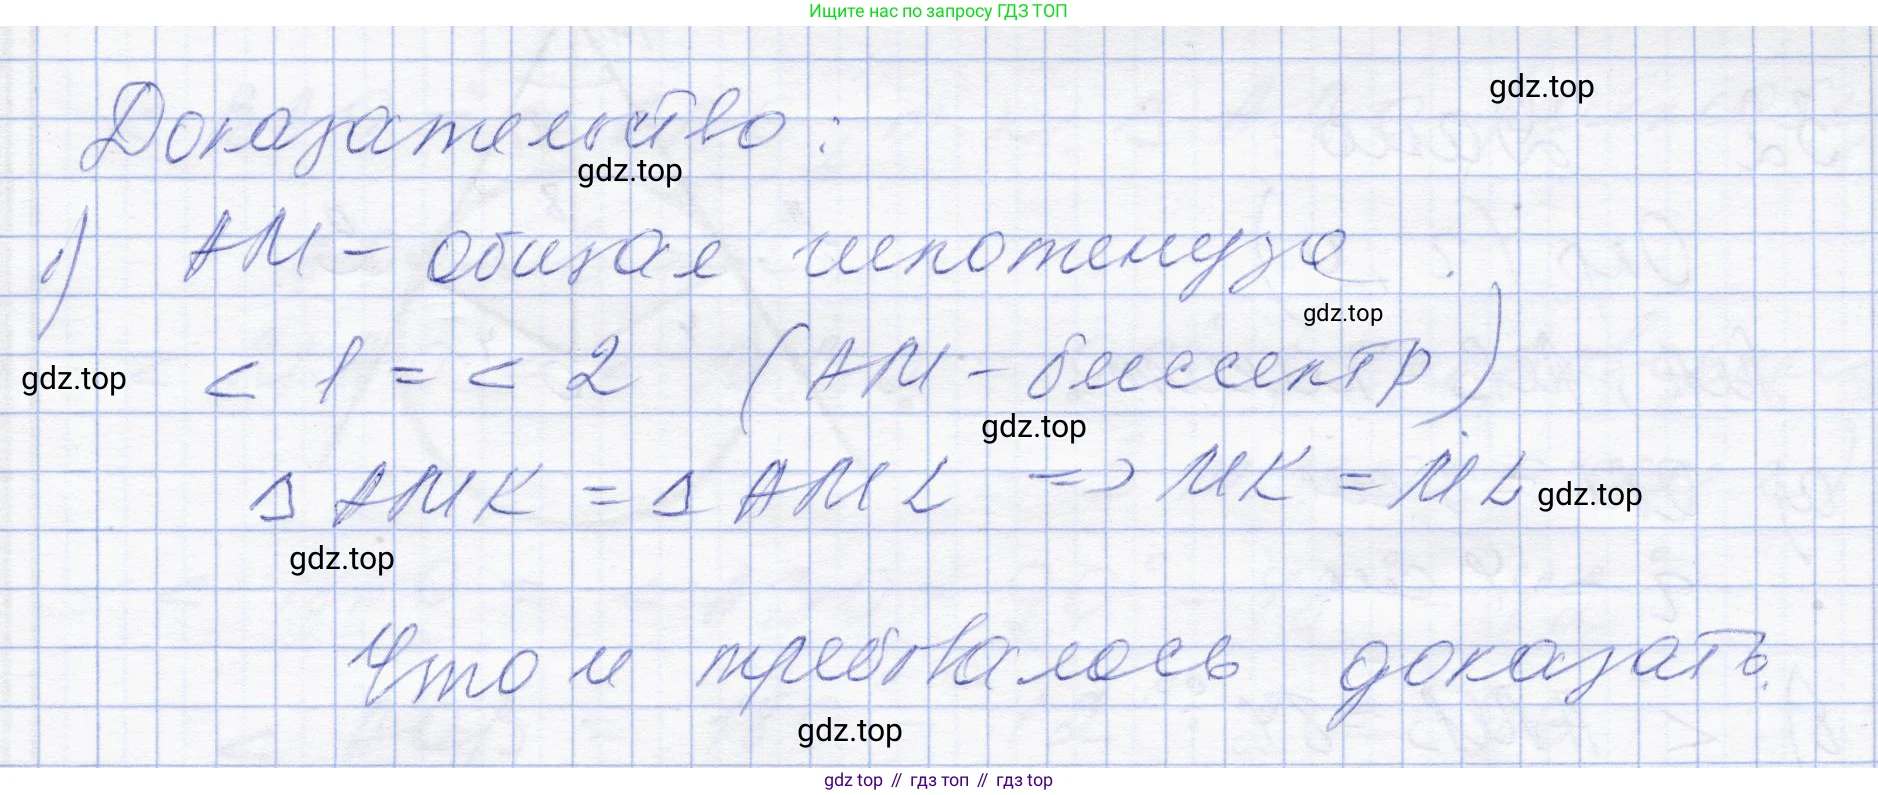 Ищите нас по запросу ГДЗ ТОП
gdz.top
Доказательство:
gdz.top
1) AM - общая гипотенуза.
gdz.top
< 1 = < 2 (AM - биссектр)
gdz.top
gdz.top
Δ AMK = Δ AML => MK = ML
gdz.top
gdz.top
Что и требовалось доказать.
gdz.top
gdz top // гдз топ // gdz top